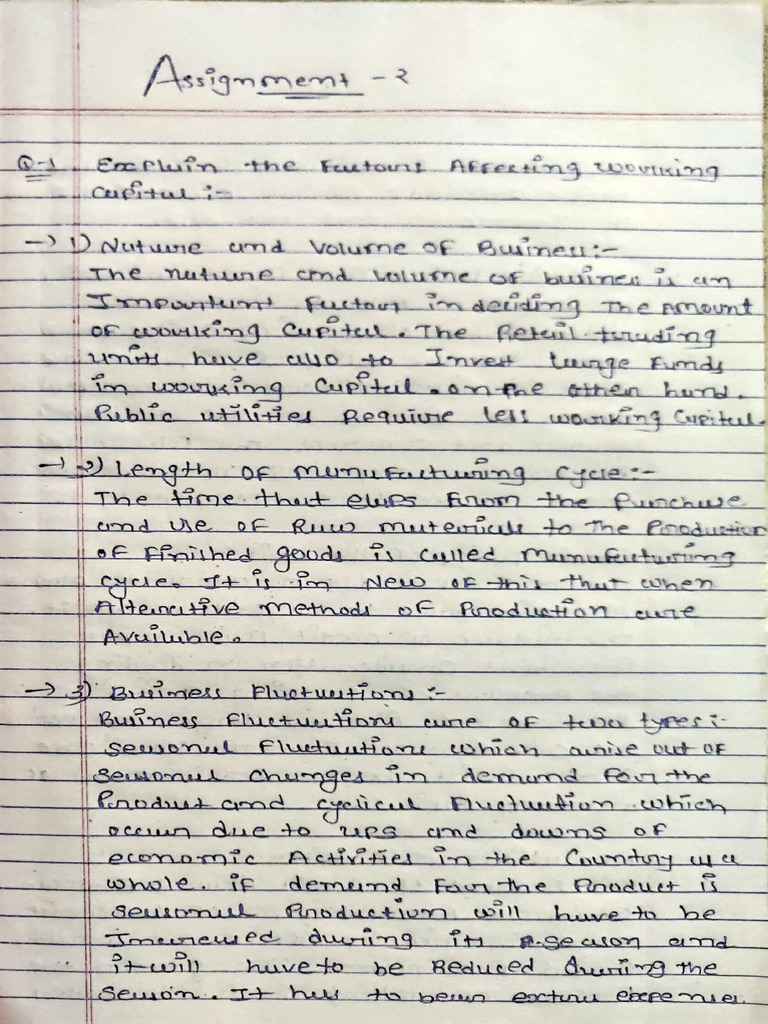 Assignment - 2
Q-1. Explain the Factors Affecting working
capital :-
→ 1) Nature and Volume of Business:-
The nature and volume of busines is an
Important factor in deciding The Amount
of working Capital. The Retail trading
units have also to Invest large Funds
in working Capital. on the other hand.
Public utilities Require less working Capital.
→ 2) Length of manufacturing Cycle:-
The time that elaps from the purchase
and use of Raw materials to The Production
of finished goods is called manufacturing
cycle. It is in New of this that when
Alternative methods of Production are
Available.
→ 3) Business Fluctuations :-
Business Fluctuations are of two types:-
seasonal Fluctuations which arise out of
seasonal changes in demand for the
Product and cyclical Fluctuation which
occur due to ups and downs of
economic Activities in the Country as a
whole. if demand For the Product is
seasonal Production will have to be
Increased during its season and
it will have to be Reduced During the
season. It has to bear extra expenses